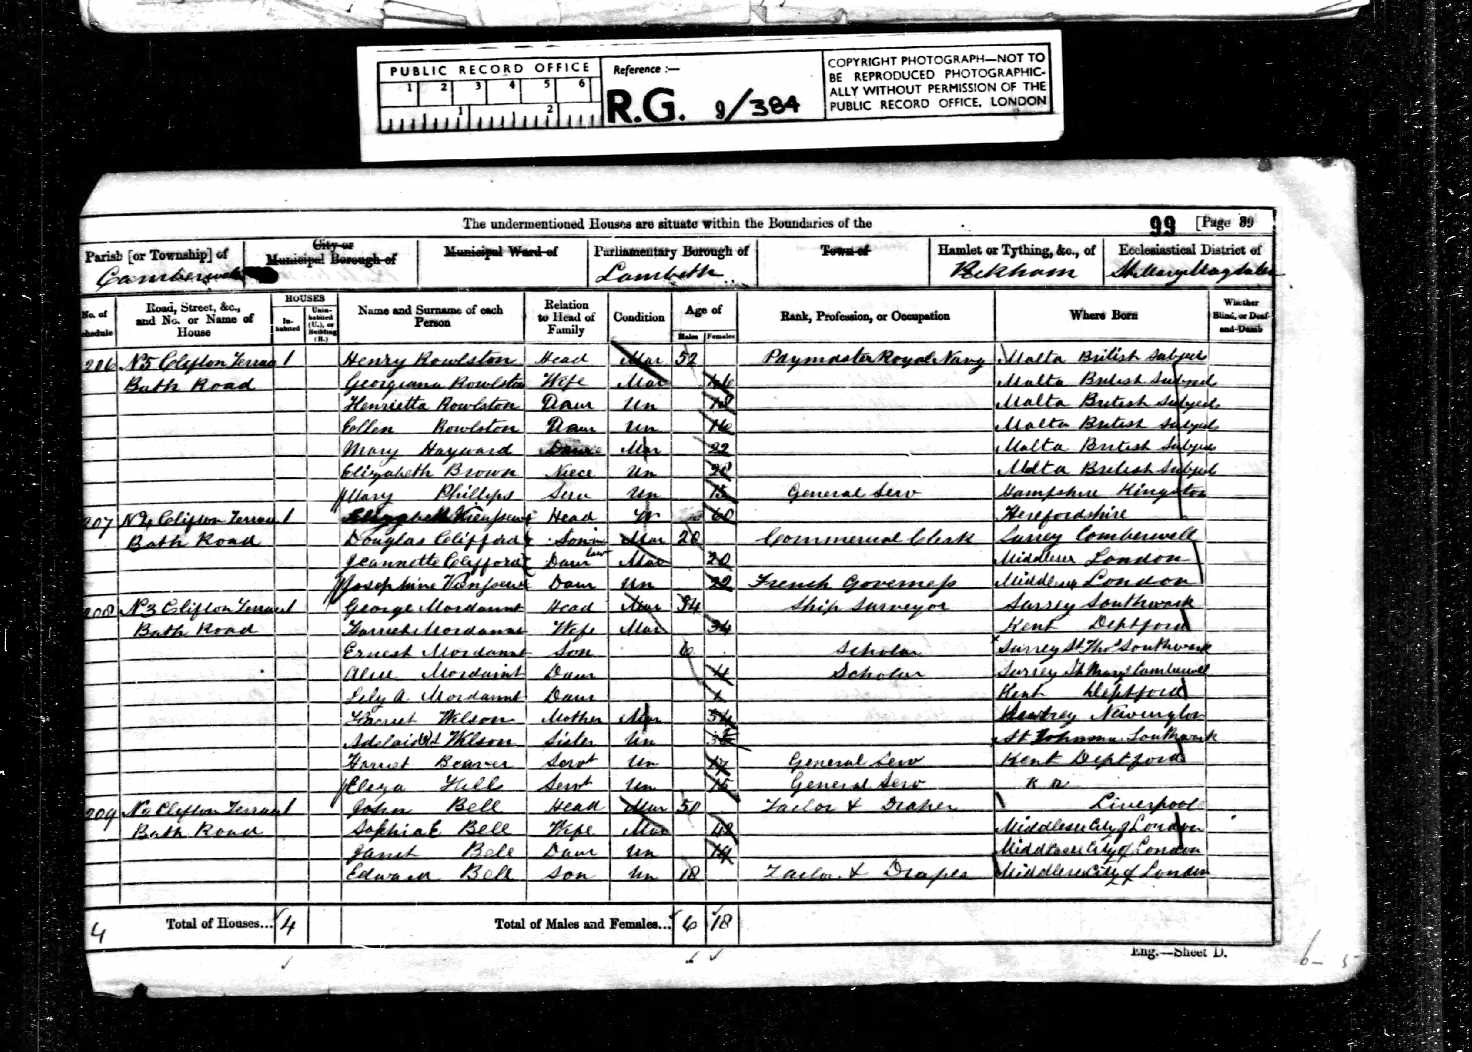 PUBLIC RECORD OFFICE
1 2 3 4 5 6
1 2
Reference :—
R.G. 9/384
COPYRIGHT PHOTOGRAPH—NOT TO
BE REPRODUCED PHOTOGRAPHIC-
ALLY WITHOUT PERMISSION OF THE
PUBLIC RECORD OFFICE, LONDON
The undermentioned Houses are situate within the Boundaries of the
99 [Page 39
Parish [or Township] of City or Municipal Borough of Municipal Ward of Parliamentary Borough of Town of Hamlet or Tything, &c., of Ecclesiastical District of
Camberwell Lambeth Peckham St Mary Magdalen
No. of Schedule Road, Street, &c., and No. or Name of House HOUSES Inhabited Uninhabited (U.), or Building (B.) Name and Surname of each Person Relation to Head of Family Condition Age of Males Females Rank, Profession, or Occupation Where Born Whether Blind, or Deaf-and-Dumb
206 No 5 Clifton Terrace 1 Henry Rowlston Head Mar 52 Paymaster Royal Navy Malta British Subject
Bath Road Georgiana Rowlston Wife Mar 46 Malta British Subject
Henrietta Rowlston Daur Un 18 Malta British Subject
Ellen Rowlston Daur Un 16 Malta British Subject
Mary Hayward Daur Mar 22 Malta British Subject
Elizabeth Brown Niece Un Malta British Subject
Mary Phillips Serv Un 15 General Serv Hampshire Kingston
207 No 4 Clifton Terrace 1 Elizabeth Head W 60 Herefordshire
Bath Road Douglas Clifford Son in Mar 28 Commercial Clerk Surrey Camberwell
Jeannette Clifford Daur law Mar 20 Middlesex London
Josephine Daur Un 22 French Governess Middlesex London
208 No 3 Clifton Terrace 1 George Mordaunt Head Mar 34 Ship Surveyor Surrey Southwark
Bath Road Harriet Mordaunt Wife Mar 34 Kent Deptford
Ernest Mordaunt Son 6 Scholar Surrey St Thos Southwark
Alice Mordaunt Daur 4 Scholar Surrey St Mary Camberwell
Lily A Mordaunt Daur 1 Kent Deptford
Harriet Wilson Mother Mar 54 Surrey Newington
Adelaide Wilson Sister Un St Southwark
Harriet Beaver Servt Un 17 General Serv Kent Deptford
Eliza Hill Servt Un 15 General Serv
209 No Clifton Terrace 1 John Bell Head Mar 50 Tailor & Draper Liverpool
Bath Road Sophia E Bell Wife Mar 42 Middlesex City of London
Janet Bell Daur Un 14 Middlesex City of London
Edward Bell Son Un 18 Tailor & Draper Middlesex City of London
4 Total of Houses... 4 Total of Males and Females... 6 18
Eng.—Sheet D.